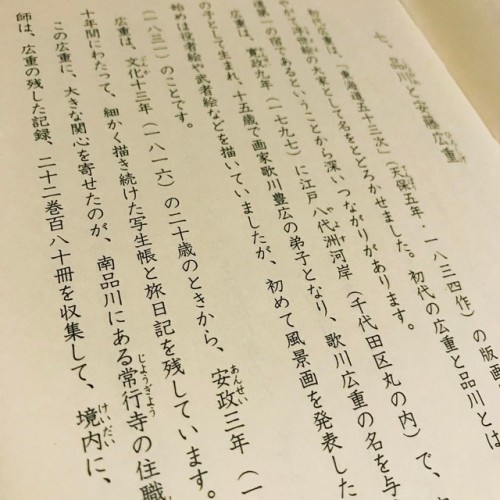 七、品川と安藤広重
初代広重は、「東海道五十三次」（天保五年・一八三四作）の版画
やがて浮世絵の大家として名をとどろかせました。初代の広重と品川とは
道第一の宿であるということから深いつながりがあります。
広重は、寛政九年（一七九七）に江戸八代洲河岸（千代田区丸の内）で、
の子として生まれ、十五歳で画家歌川豊広の弟子となり、歌川広重の名を与
始めは役者絵や武者絵などを描いていましたが、初めて風景画を発表した
（一八三一）のことです。
広重は、文化十三年（一八一六）の二十歳のときから、安政三年（一
十年間にわたって、細かく描き続けた写生帳と旅日記を残しています。
この広重に、大きな関心を寄せたのが、南品川にある常行寺の住職
師は、広重の残した記録、二十二巻百八十冊を収集して、境内に、